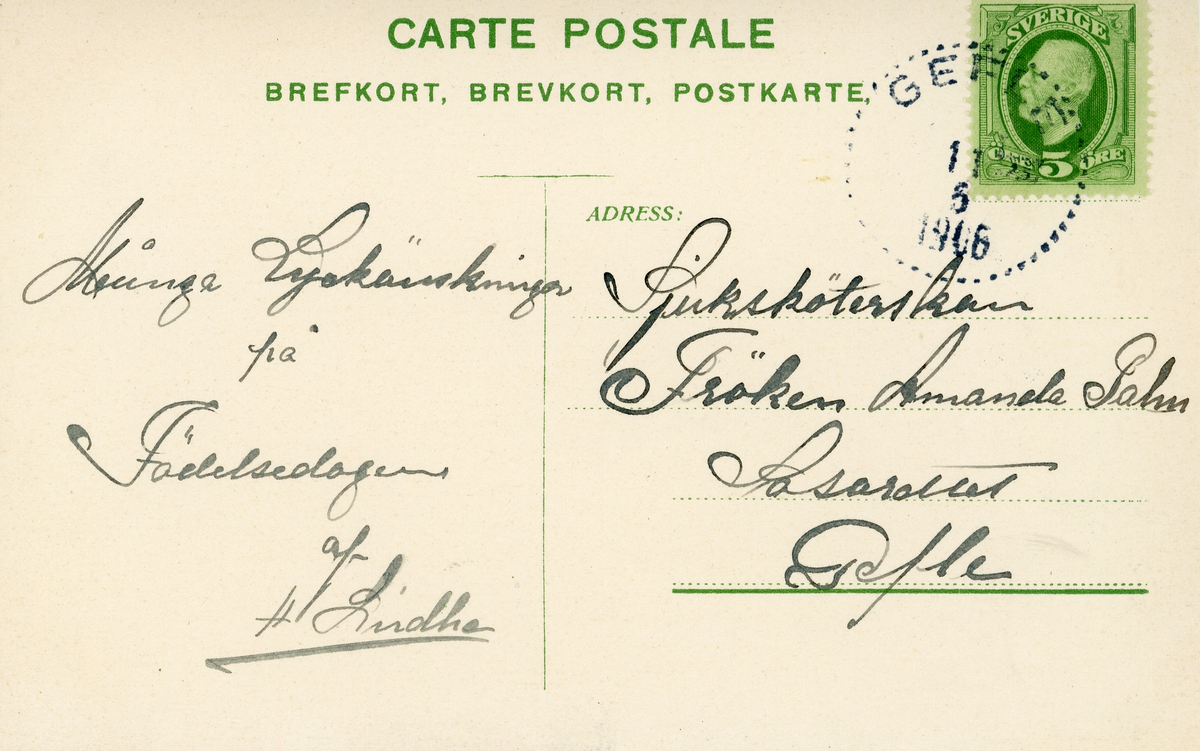 CARTE POSTALE
BREFKORT, BREVKORT, POSTKARTE,
SVERIGE
5 ÖRE
GEFLE
1906
Många Lyckönskningar
på
Födelsedagen
af
H Lindhe
ADRESS:
Sjuksköterskan
Fröken Amanda Palm
Lasarettet
Gefle